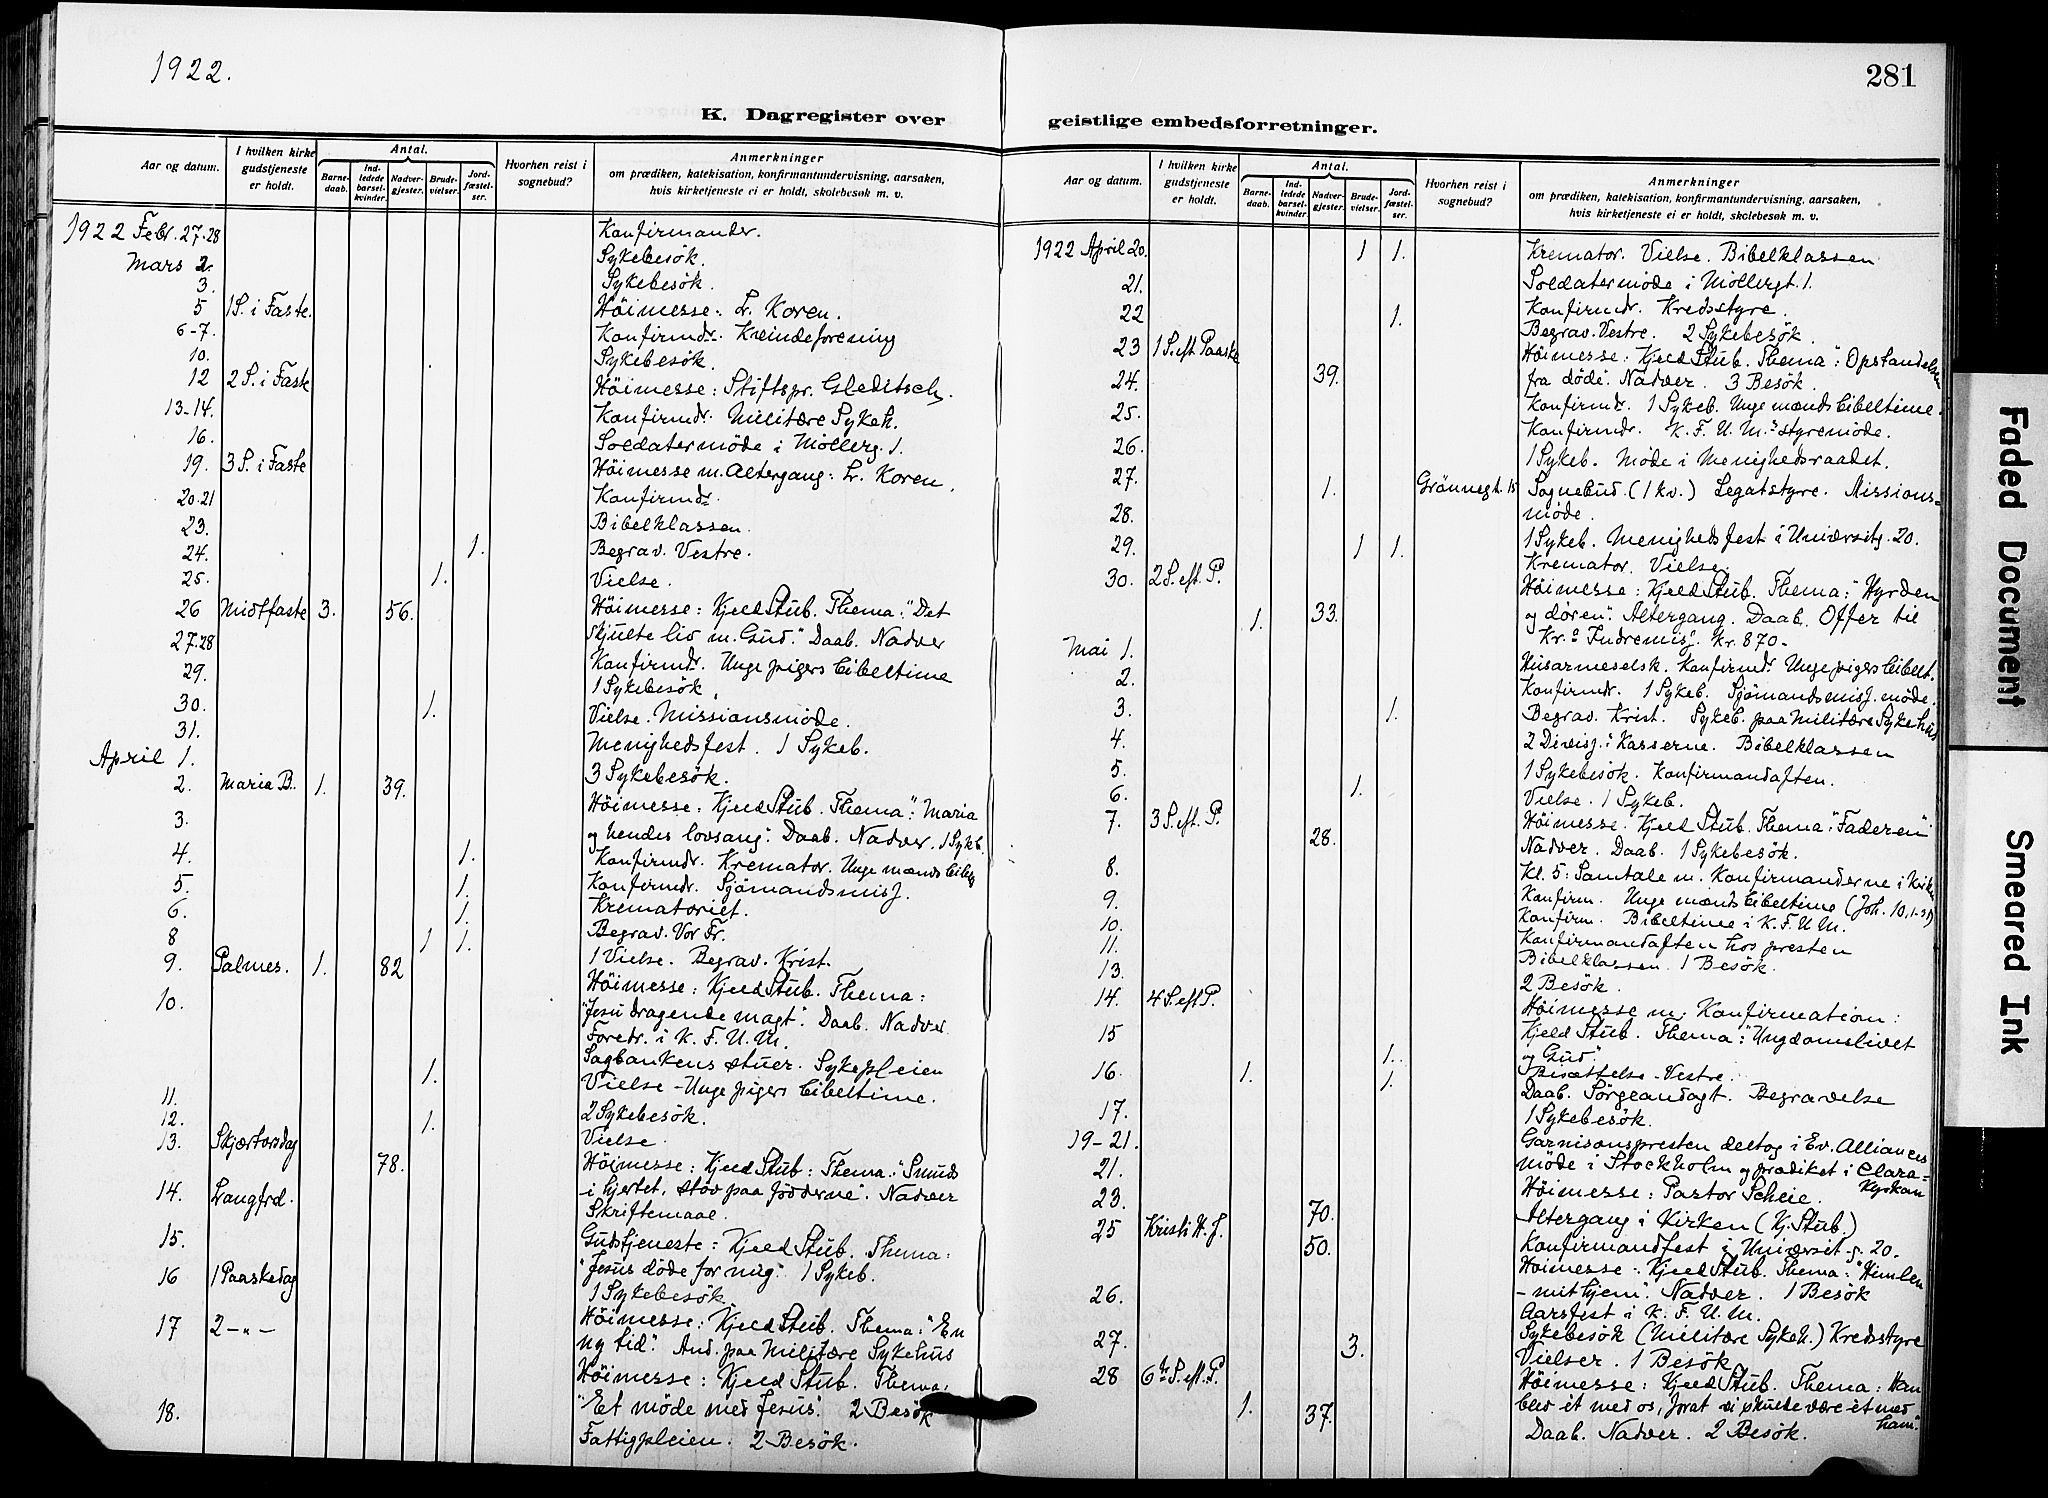 1922.
K. Dagregister over
Aar og datum.
I hvilken kirke gudstjeneste er holdt.
Antal.
Barne-daab.
Ind-ledede barsel-kvinder.
Nadver-gjester.
Brude-vielser.
Jord-fæstel-ser.
Hvorhen reist i sognebud?
Anmerkninger
om prædiken, katekisation, konfirmantundervisning, aarsaken,
hvis kirketjeneste ei er holdt, skolebesøk m. v.
1922 Febr. 27-28 Konfirmander.
Mars 2. Sykebesök.
3. Sykebesök.
5 1 S. i Faste. Höimesse: L. Koren.
6-7. Konfirmdr. Kvindeforening
10. Sykebesök.
12 2 S. i Faste Höimesse: Stiftspr. Gleditsch.
13-14. Konfirmdr. Militære Sykeh.
16. Soldatermöde i Möllerg. 1.
19. 3 S. i Faste Höimesse m. Altergang: L. Koren.
20-21 Konfirmdr.
23. Bibelklassen.
24. 1. Begrav. Vestre.
25. 1. Vielse.
26 Midtfaste 3. 56. Höimesse: Kjeld Stub. Thema: "Det
skjulte liv m. Gud." Daab. Nadver
27-28 Konfirmdr. Unge pigers bibeltime
29. 1 Sykebesök.
30. 1. Vielse. Missionsmöde.
31. Menighedsfest. 1 Sykeb.
April 1. 3 Sykebesök.
2. Maria B. 1. 39. Höimesse: Kjeld Stub. Thema: "Maria
og hendes lovsang". Daab. Nadver. 1 Sykb.
3. Konfirmdr. Kremator. Unge mænds bibelt.
4. 1. Konfirmdr. Sjömandsmisj.
5. 1. Krematoriet.
6. 1. Begrav. Vor Fr.
8 1 1. 1 Vielse. Begrav. Krist.
9. Palmes. 1. 82 Höimesse: Kjeld Stub. Thema:
"Jesu dragende magt". Daab. Nadver.
Foredr. i K. F. U. M.
10. Sagbankens stuer. Sykepleien
1. Vielse - Unge pigers bibeltime.
11. 2 Sykebesök.
12. 1. Vielse.
13. Skjærtorsdag 78. Höimesse: Kjeld Stub: Thema: "Smuds
i hjertet, stöv paa födderne". Nadver
Skriftemaal.
14. Langfrd. Gudstjeneste: Kjeld Stub. Thema:
"Jesus döde for mig". 1 Sykeb.
15. 1 Sykebesök.
16 1 Paaskedag Höimesse: Kjeld Stub. Thema: "En
ny tid". And. paa Militære Sykehus
17 2 -"- Höimesse: Kjeld Stub. Thema:
"Et möde med Jesus". 2 Besök
18. Fattigpleien. 2 Besök.
281
geistlige embedsforretninger.
Aar og datum.
I hvilken kirke gudstjeneste er holdt.
Antal.
Barne-daab.
Ind-ledede barsel-kvinder.
Nadver-gjester.
Brude-vielser.
Jord-fæstel-ser.
Hvorhen reist i sognebud?
Anmerkninger
om prædiken, katekisation, konfirmantundervisning, aarsaken,
hvis kirketjeneste ei er holdt, skolebesøk m. v.
1922 April 20. 1 1. Kremator. Vielse. Bibelklassen
Soldatermöde i Möllergt. 1.
21. Konfirmdr. Kredsstyre.
22 1. Begrav. Vestre. 2 Sykebesök.
23 1 S. eft. Paaske 39. Höimesse: Kjeld Stub. Thema: "Opstandelsen
fra döde". Nadver. 3 Besök.
24. Konfirmdr. 1 Sykeb. Unge mænds bibeltime.
25. Konfirmdr. K. F. U. M.s styremöde.
26. 1 Sykeb. Möde i Menighedsraadet.
27. 1. Grönnegt. 15 Sognebud. (1 kv.) Legatstyre. Missions-
möde.
28. 1 Sykeb. Menighedsfest i Universitg. 20.
29. 1 1. Kremator. Vielse.
30. 2 S. eft. P. 1. 33. Höimesse: Kjeld Stub. Thema: "Hyrden
og dören". Altergang. Daab. Offer til
Kr.a Indremisj. Kr. 870-
Mai 1. Konfirmdr. Unge pigers bibelt.
2. Konfirmdr. 1 Sykeb. Sjömandsmisj. möde.
3. 1. Begrav. Krist. Sykeb. paa Militære Sykehus
4. 2 Divisj. i Kasserne. Bibelklassen
5. 1 Sykebesök. Konfirmandaften.
6. 1. Vielse. 1 Sykeb.
7. 3 S. eft. P. 28. Höimesse. Kjeld Stub. Thema: "Faderen"
Nadver. Daab. 1 Sykebesök.
Kl. 5: Samtale m. Konfirmanderne i Kirken
8. Konfirm. Unge mænds bibeltime (Joh. 10,1-21)
9. Konfirm. Bibeltime i K. F. U. M.
10. Konfirmandaften hos presten
11. Bibelklassen. 1 Besök.
13. 2 Besök.
14. 4 S. eft P. Höimesse m. Konfirmation:
Kjeld Stub. Thema: "Ungdomslivet
og Gud"
15 1. Bisættelse - Vestre.
16. 1. 1. Daab. Sörgeandagt. Begravelse
17. 1 Sykebesök.
19-21. Garnisonspresten deltog i Ev. Alliances
möde i Stockholm og prædiket i Clara-
kyrkan
21. Höimesse: Pastor Scheie.
23. 70. Altergang i Kirken (Kj. Stub.)
Konfirmandfest i Universit.g. 20.
25 Kristi H. f. 50. Höimesse: Kjeld Stub. Thema: "Himlen
- mit hjem". Nadver. 1 Besök
Aarsfest i K. F. U. M.
26. Sykebesök (Militære Sykeh.) Kredsstyre
27. 3. Vielser. 1 Besök
28 6te S. eft. P. 1. 37. Höimesse: Kjeld Stub. Thema: "Han
blev ét med os, forat vi skulde være ét med
ham".
Daab. Nadver. 2 Besök.
Faded Document
Smeared Ink